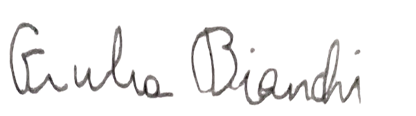 Giulia Bianchi